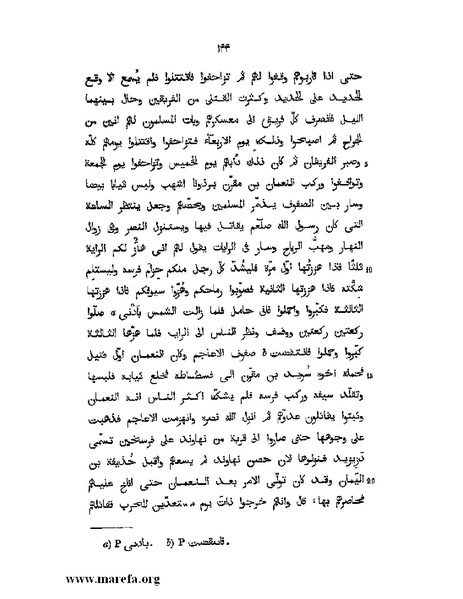 ١٤٤
حتى اذا قاربوهم وقفوا لهم ثم تزاحفوا فاقتتلوا فلم يُسمع الا وقع
الحديد على الحديد وكثرت القتلى من الفريقين وحال بينهما
الليل فانصرف كل فريق الى معسكرهم وبات المسلمون لهم انين من
الجراح ثم اصبحوا وذلك يوم الاربعاء فتزاحفوا واقتتلوا يومهم كلّه
5 وصبر الفريقان ثم كان ذلك دأبهم يوم الخميس وتزاحفوا يوم الجمعة
وتواقفوا وركب النعمان بن مقرّن برذونا اشهب ولبس ثيابا بيضا
وسار بين الصفوف يذمّر المسلمين ويحضّهم وجعل ينتظر الساعة
التى كان رسول الله صلّعم يقاتل فيها ويستنزل النصر وفى زوال
النهار ومهبّ الرياح وسار فى الرايات يقول لهم انى هازٌّ لكم الراية
10 ثلثا فاذا هززتُها اوّل مرّة فليشدّ كلّ رجل منكم حزام فرسه وليستلم
شكّته فاذا هززتها الثانية فصوّبوا رماحكم وهُزّوا سيوفكم فاذا هززتها
الثالثة فكبّروا واحملوا فانى حامل فلما زالت الشمس بأدنى a صلّوا
ركعتين ركعتين ووقف ونظر الناس الى الراية فلما هزّها الثالثة
كبّروا وحملوا فانتقضت b صفوف الاعاجم وكان النعمان اوّل قتيل
15 فحمله اخوه سُويد بن مقرّن الى فسطاطه فخلع ثيابه فلبسها
وتقلّد سيفه وركب فرسه فلم يشكّ اكثر الناس انه النعمان
وثبتوا يقاتلون عدوّهم ثم انزل الله نصره وانهزمت الاعاجم فذهبت
على وجوهها حتى صاروا الى قرية من نهاوند على فرسخين تسمّى
دزيزيد فنزلوها لان حصن نهاوند لم يسعهم واقبل حُذيفة بن
20 اليَمان وقد كان تولّى الامر بعد النعمان حتى اناخ عليهم
فحاصرهم بها، قال وانهم خرجوا ذات يوم مستعدّين للحرب فقاتلهم
a) P بادنى. b) P فانتقضت.
www.marefa.org